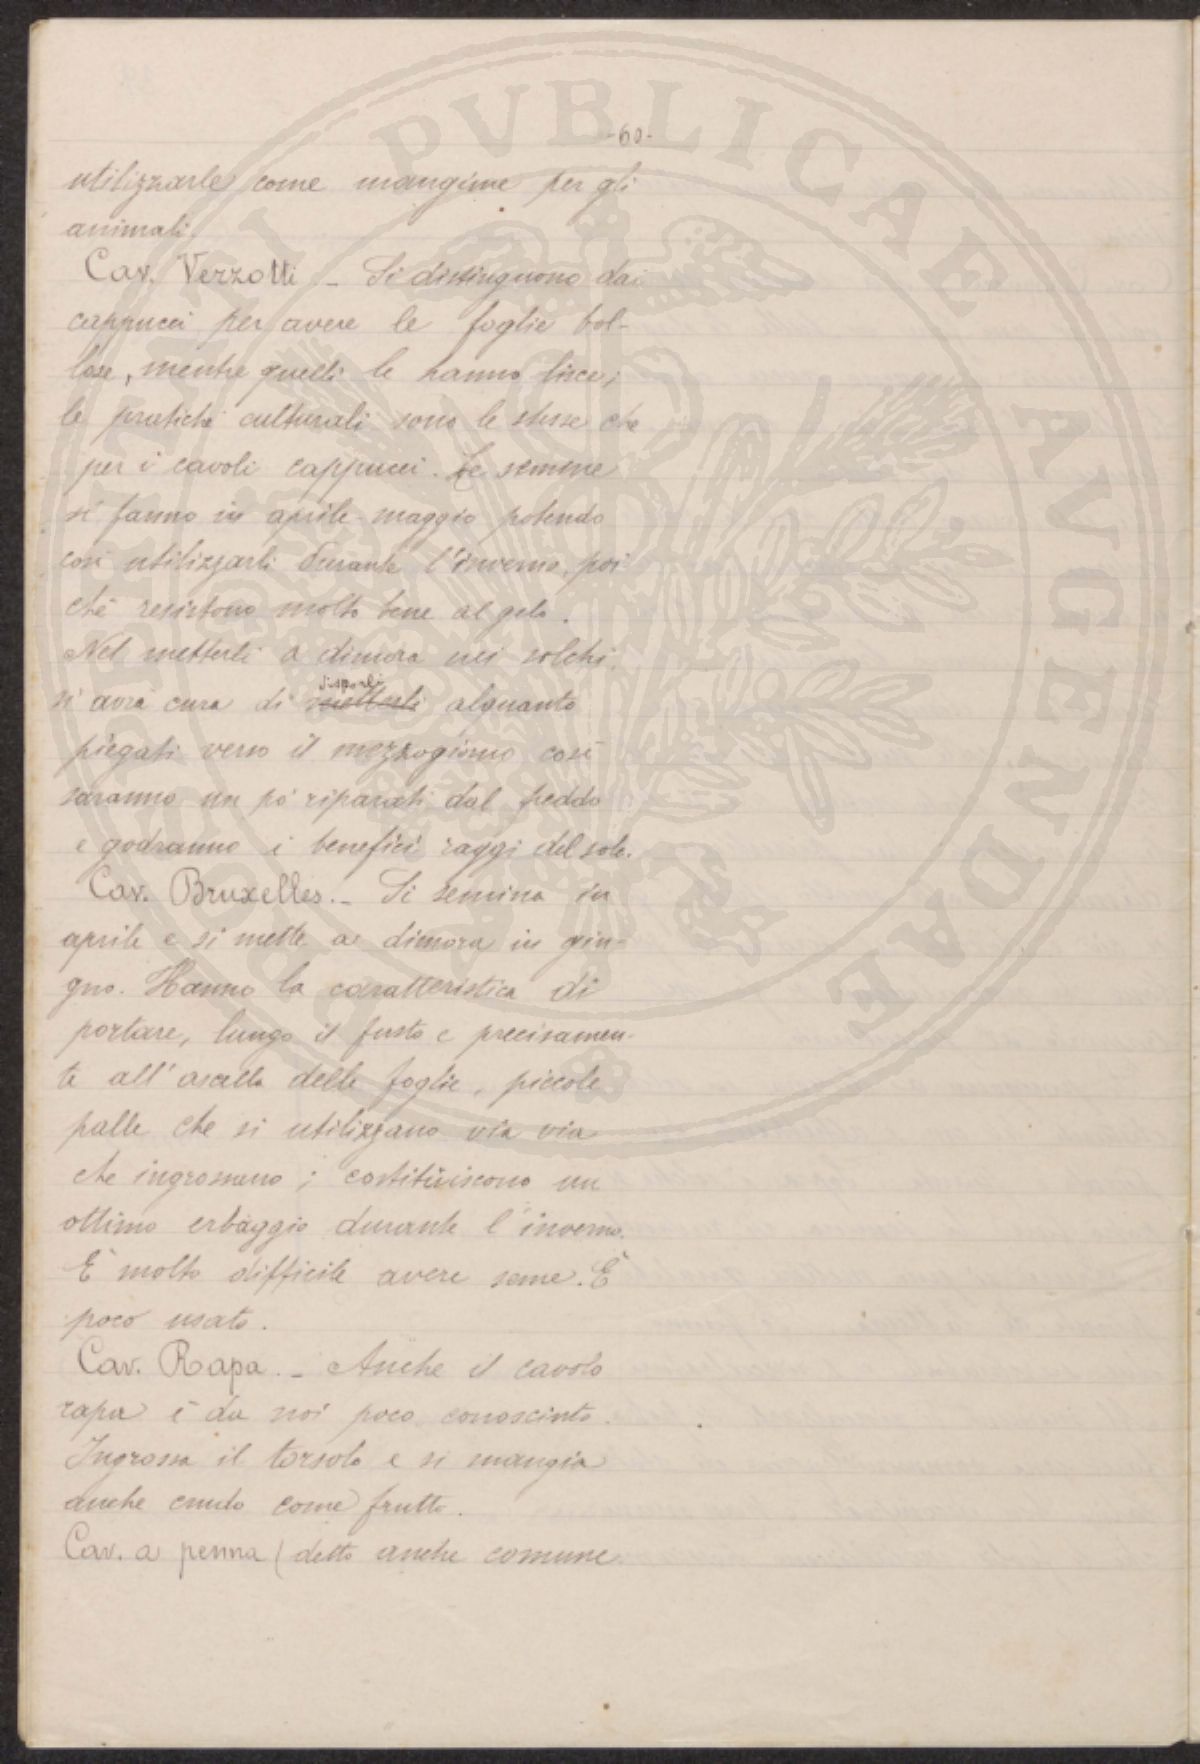 -60-
utilizzarle come mangime per gli
animali.
Cav. Verzotti - Si distinguono dai
cappucci per avere le foglie bol-
lose, mentre quelli le hanno lisce;
le pratiche culturali sono le stesse che
per i cavoli cappucci. Le semine
si fanno in aprile-maggio potendo
così utilizzarli durante l'inverno, poi
chè resistono molto bene al gelo.
Nel metterli a dimora nei solchi,
disporli
si avrà cura di metterli alquanto
piegati verso il mezzogiorno così
saranno un pò riparati dal freddo
e godranno i benefici raggi del sole.
Cav. Bruxelles. - Si semina in
aprile e si mette a dimora in giu-
gno. Hanno la caratteristica di
portare, lungo il fusto e precisamen-
te all'ascella delle foglie, piccole
palle che si utilizzano via via
che ingrossano; costituiscono un
ottimo erbaggio durante l'inverno.
È molto difficile avere seme. È
poco usato.
Cav. Rapa. - Anche il cavolo
rapa è da noi poco conosciuto.
Ingrossa il torsolo e si mangia
anche crudo come frutto.
Cav. a penna (detto anche comune
PVBLICAE AVGENDAE